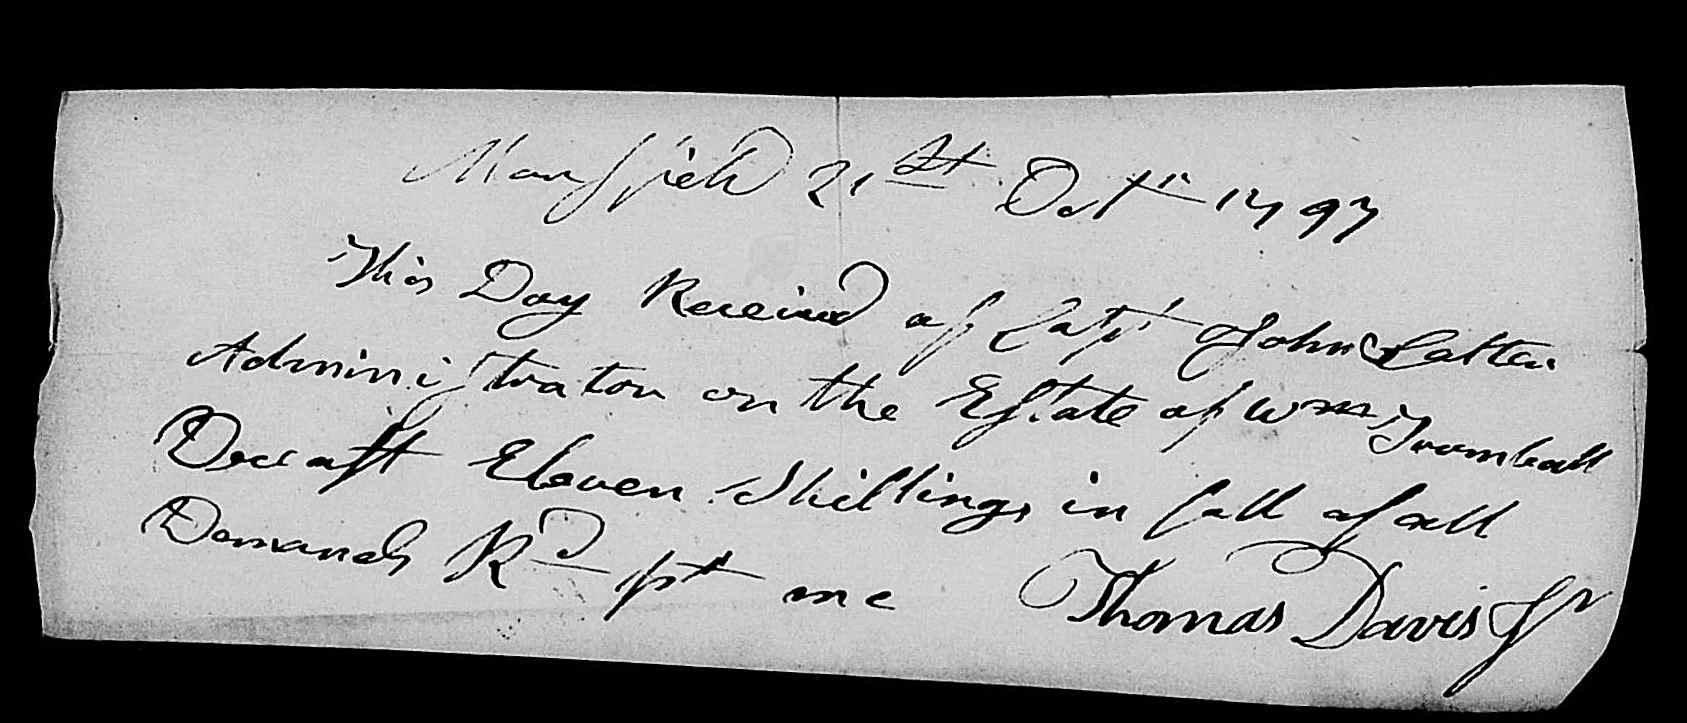 Mansfield 21st Octr 1797
This Day Received of Capt John Salter
Administrator on the Estate of Wm Trumball
Deceast Eleven Shillings in full of all
Demands Rd pr me Thomas Davis Jr